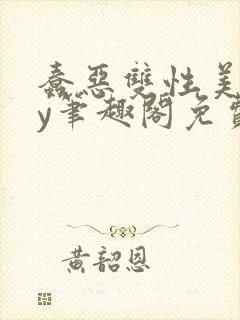 蠢惡雙性美
y筆趣閣免費
黃韶恩